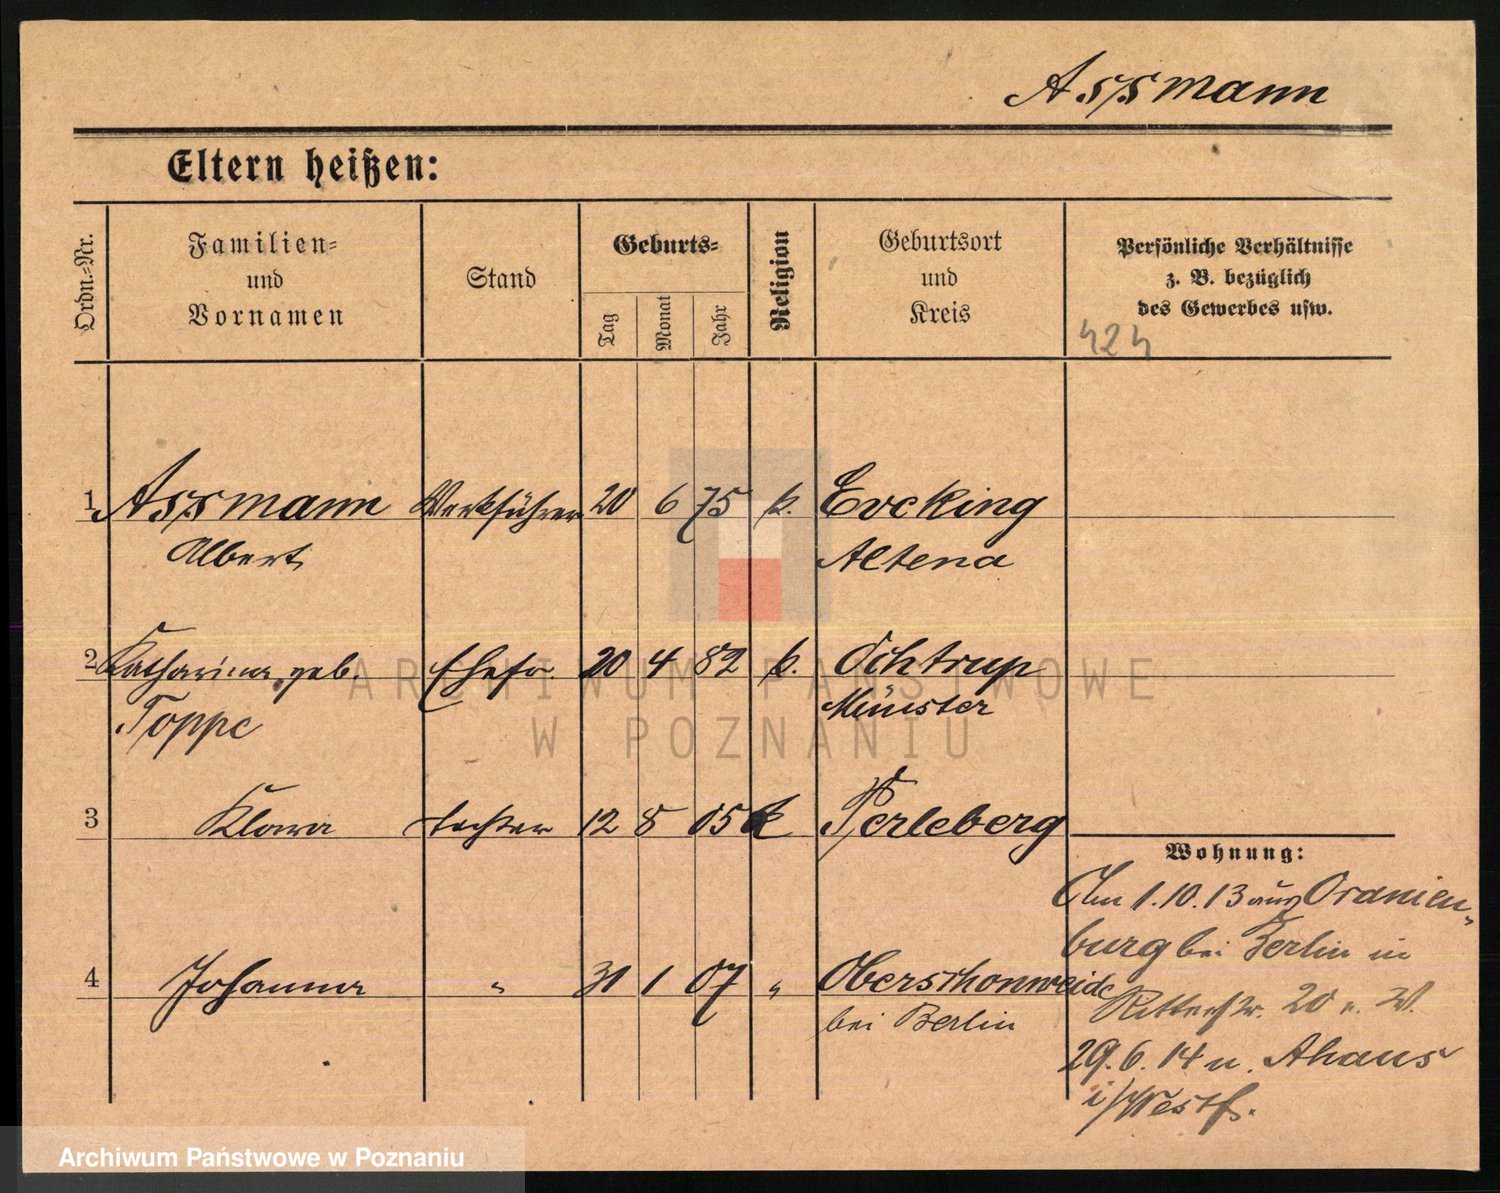 Assmann
Eltern heißen:
Ordn.-Nr.
Familien-
und
Vornamen
Stand
Geburts-
Tag
Monat
Jahr
Religion
Geburtsort
und
Kreis
Persönliche Verhältnisse
z. B. bezüglich
des Gewerbes usw.
424
1 Assmann Werkführer 20 6 75 k. Evcking
Albert Altena
2 Katharina geb. Ehefr. 20 4 82 k. Ochtrup
Toppe Münster
3 Klara tochter 12 8 05 k Perleberg
Wohnung:
Am 1.10.13 aus Oranien-
burg bei Berlin in
4 Johanna " 31 1 07 " Oberschonweide
Ritterstr. 20
bei Berlin
29.6.14 n. Ahaus
i/Westf.
ARCHIWUM PAŃSTWOWE
W POZNANIU
Archiwum Państwowe w Poznaniu